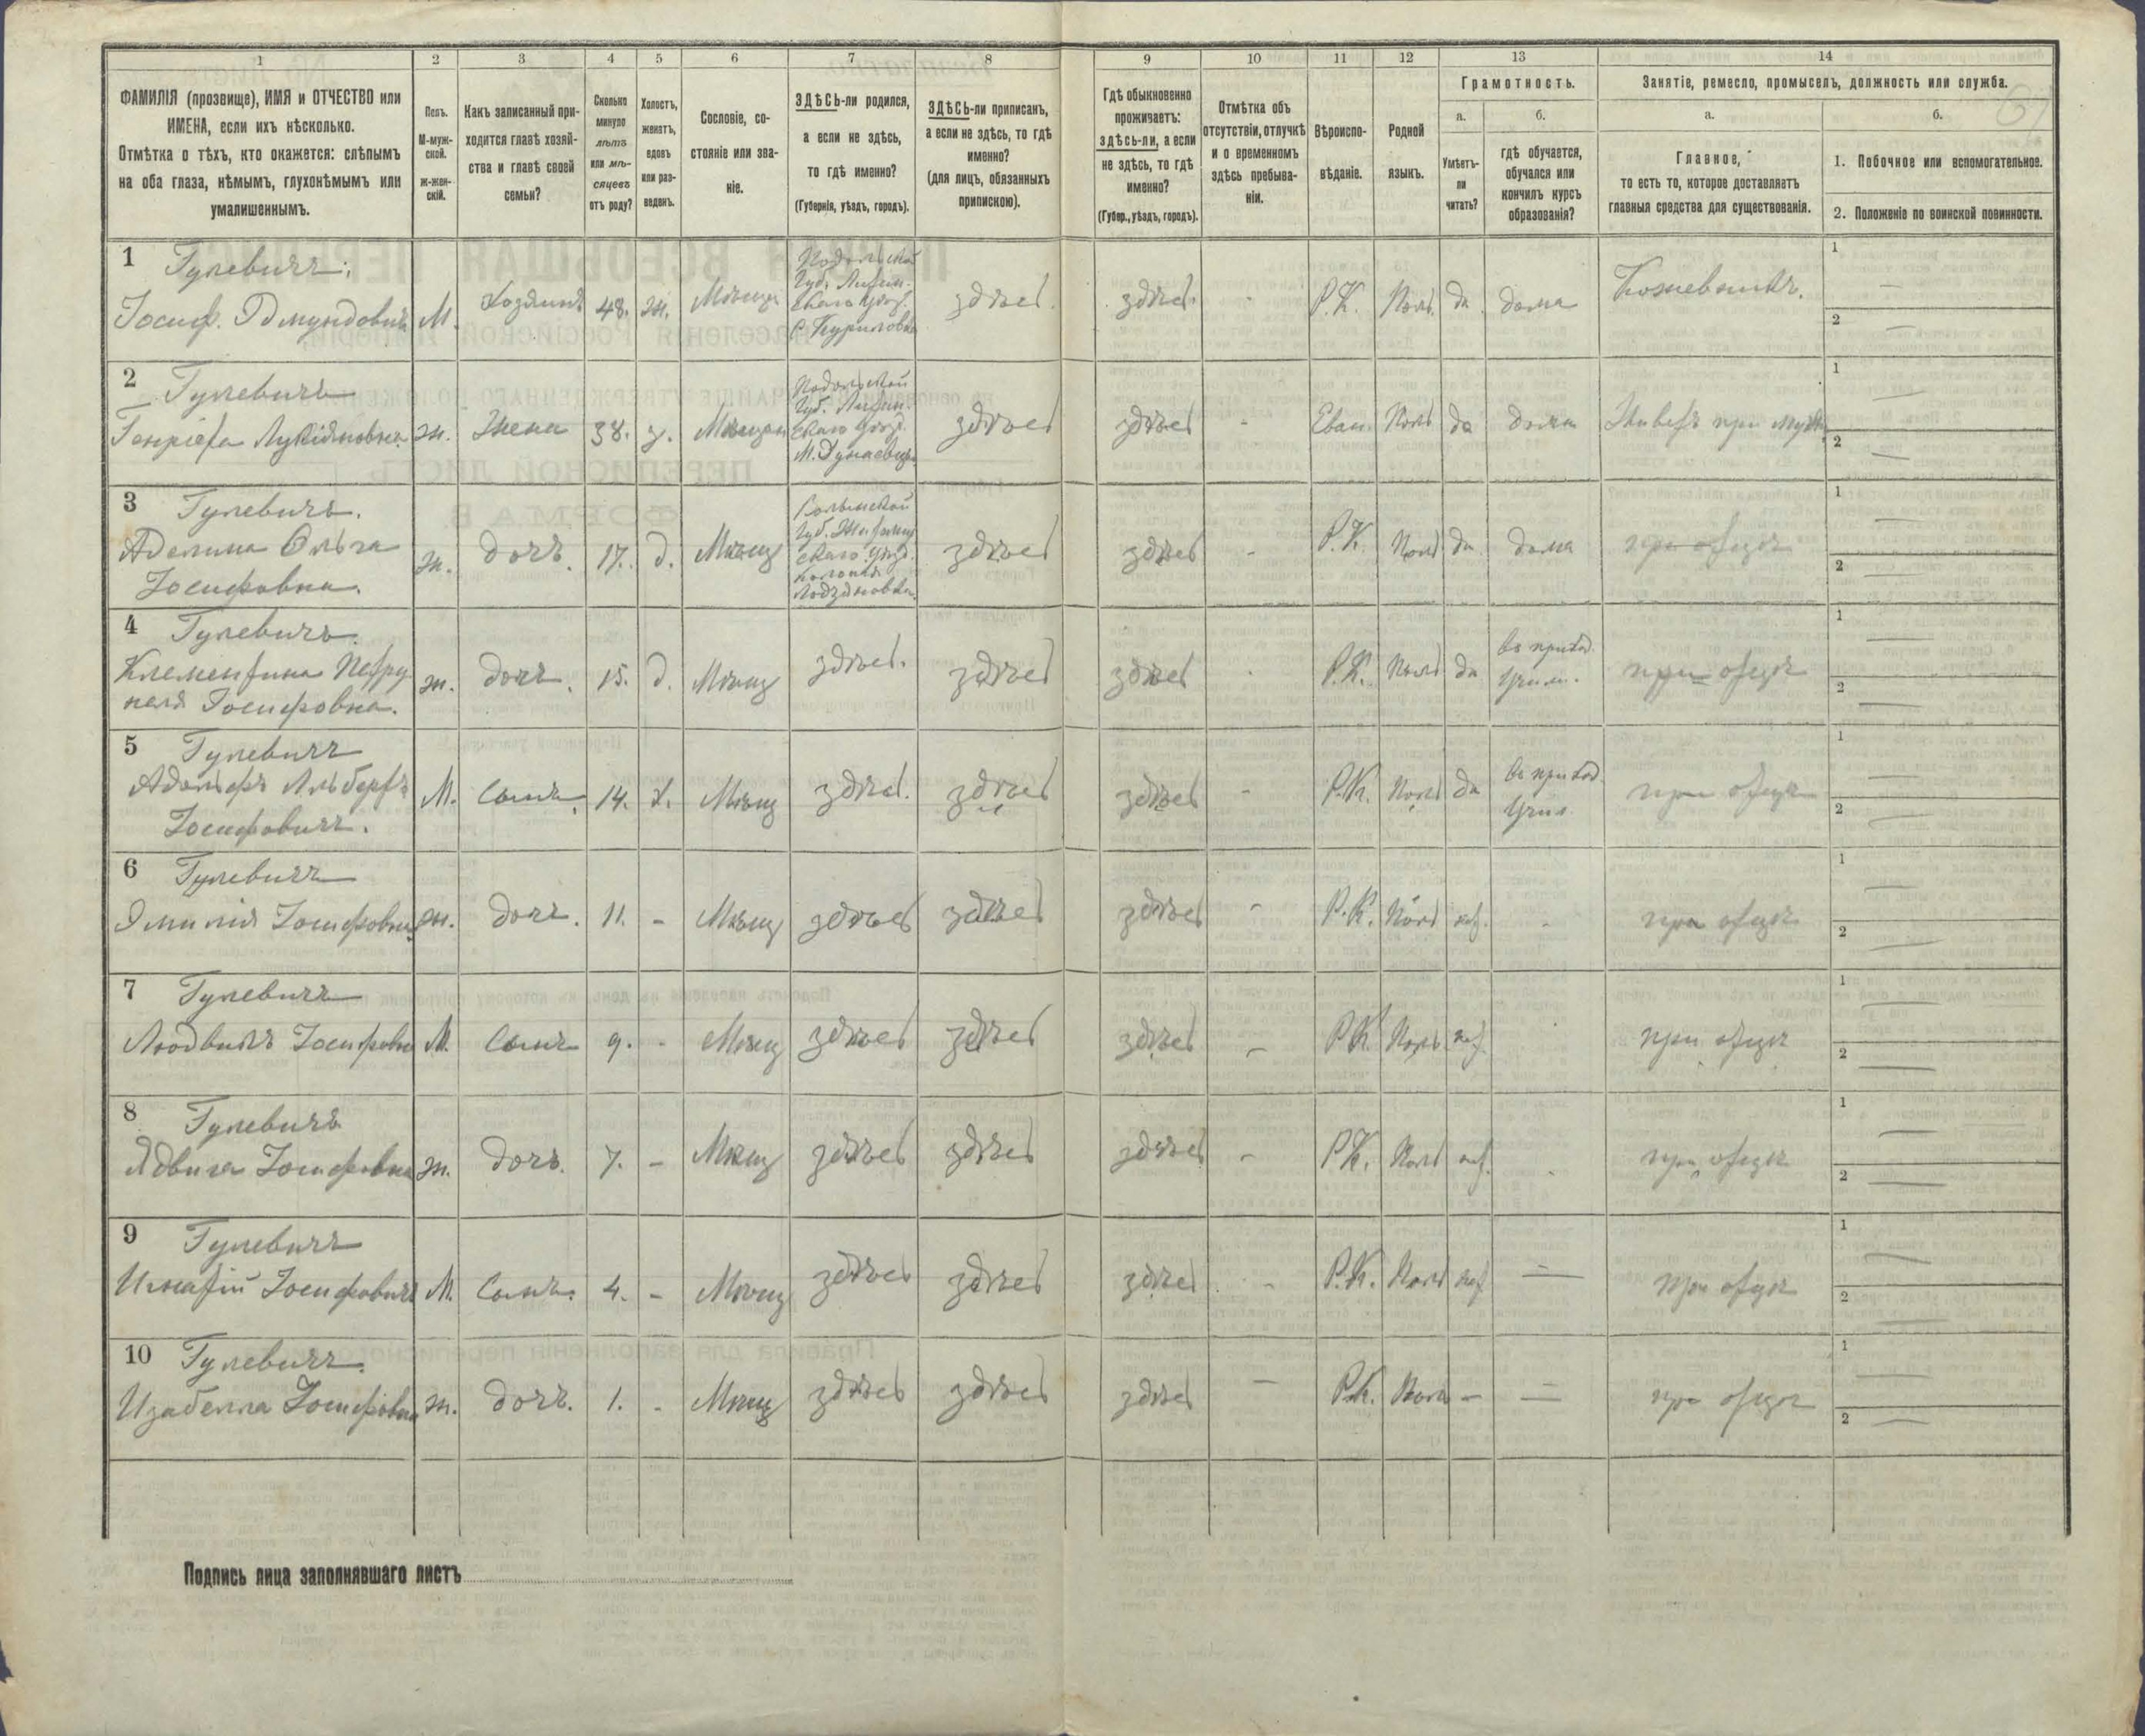 1 2 3 4 5 6 7 8 9 10 11 12 13 14
ФАМИЛІЯ (прозвище), ИМЯ и ОТЧЕСТВО или
ИМЕНА, если ихъ нѣсколько.
Отмѣтка о тѣхъ, кто окажется: слѣпымъ
на оба глаза, нѣмымъ, глухонѣмымъ или
умалишеннымъ.
Полъ.
М-муж-
ской.
Ж-жен-
скій.
Какъ записанный при-
ходится главѣ хозяй-
ства и главѣ своей
семьи?
Сколько
минуло
лѣтъ
или мѣ-
сяцевъ
отъ роду?
Холостъ,
женатъ,
вдовъ
или раз-
веденъ.
Сословіе, со-
стояніе или зва-
ніе.
ЗДѢСЬ-ли родился,
а если не здѣсь,
то гдѣ именно?
(Губернія, уѣздъ, городъ).
ЗДѢСЬ-ли приписанъ,
а если не здѣсь, то гдѣ
именно?
(для лицъ, обязанныхъ
припискою).
Гдѣ обыкновенно
проживаетъ:
здѣсь-ли, а если
не здѣсь, то гдѣ
именно?
(Губер., уѣздъ, городъ).
Отмѣтка объ
отсутствіи, отлучкѣ
и о временномъ
здѣсь пребыва-
ніи.
Вѣроиспо-
вѣданіе.
Родной
языкъ.
Грамотность.
а.
Умѣетъ-
ли
читать?
б.
гдѣ обучается,
обучался или
кончилъ курсъ
образованія?
Занятіе, ремесло, промыселъ, должность или служба.
а.
Главное,
то есть то, которое доставляетъ
главныя средства для существованія.
б.
1. Побочное или вспомогательное.
2. Положеніе по воинской повинности.
1 Гулевичъ
Іосиф. Эдмундовичъ М. Хозяинъ 48. ж. Мѣщан
Подольской
Губ. Литин-
скаго уѣзд.
с. Куриловка
здѣсь здѣсь - Р.К. Поль. да дома Кожевникъ.
1 —
2 —
2 Гулевичъ
Генріета Лукіяновна ж. Жена 38. з. Мѣщан
Подольской
Губ. Литин-
скаго уѣзд.
М. Дунаевцы
здѣсь здѣсь - Еван. Поль да дома Живетъ при мужѣ
1 —
2 —
3 Гулевичъ.
Аделина Ольга
Іосифовна. ж. дочь 17. д. Мѣщ
Волынской
Губ. Житомир
скаго уѣзд.
колонія
здѣсь здѣсь - Р.К. Поль да дома при отцѣ
1 —
2 —
4 Гулевичъ.
Клементина Петру
неля Іосифовна. ж. дочь. 15. д. Мѣщ здѣсь. здѣсь здѣсь - Р.К. Поль да
въ приход.
Учил.
при отцѣ
1 —
2 —
5 Гулевичъ
Адольфъ Альбертъ
Іосифовичъ. М. Сынъ 14. х. Мѣщ здѣсь. здѣсь здѣсь - Р.К. Поль да
въ приход.
Учил.
при отцѣ
1 —
2 —
6 Гулевичъ
Эмилія Іосифовна ж. дочь. 11. - Мѣщ здѣсь здѣсь здѣсь - Р.К. Поль нет. - при отцѣ
1 —
2 —
7 Гулевичъ
Людвигъ Іосифови М. Сынъ 9. - Мѣщ здѣсь здѣсь здѣсь - Р.К. Поль нет. при отцѣ
1 —
2 —
8 Гулевичъ
Ядвига Іосифовна ж. дочь. 7. - Мѣщ здѣсь здѣсь здѣсь - Р.К. Поль нет. - при отцѣ
1 —
2 —
9 Гулевичъ
Игнатій Іосифовичъ М. Сынъ. 4. - Мѣщ здѣсь здѣсь здѣсь - Р.К. Поль нет — при отцѣ
1 —
2 —
10 Гулевичъ.
Изабелла Іосифовна ж. дочь. 1. - Мѣщ здѣсь здѣсь здѣсь - Р.К. Поль - — при отцѣ
1 —
2 —
Подпись лица заполнявшаго листъ